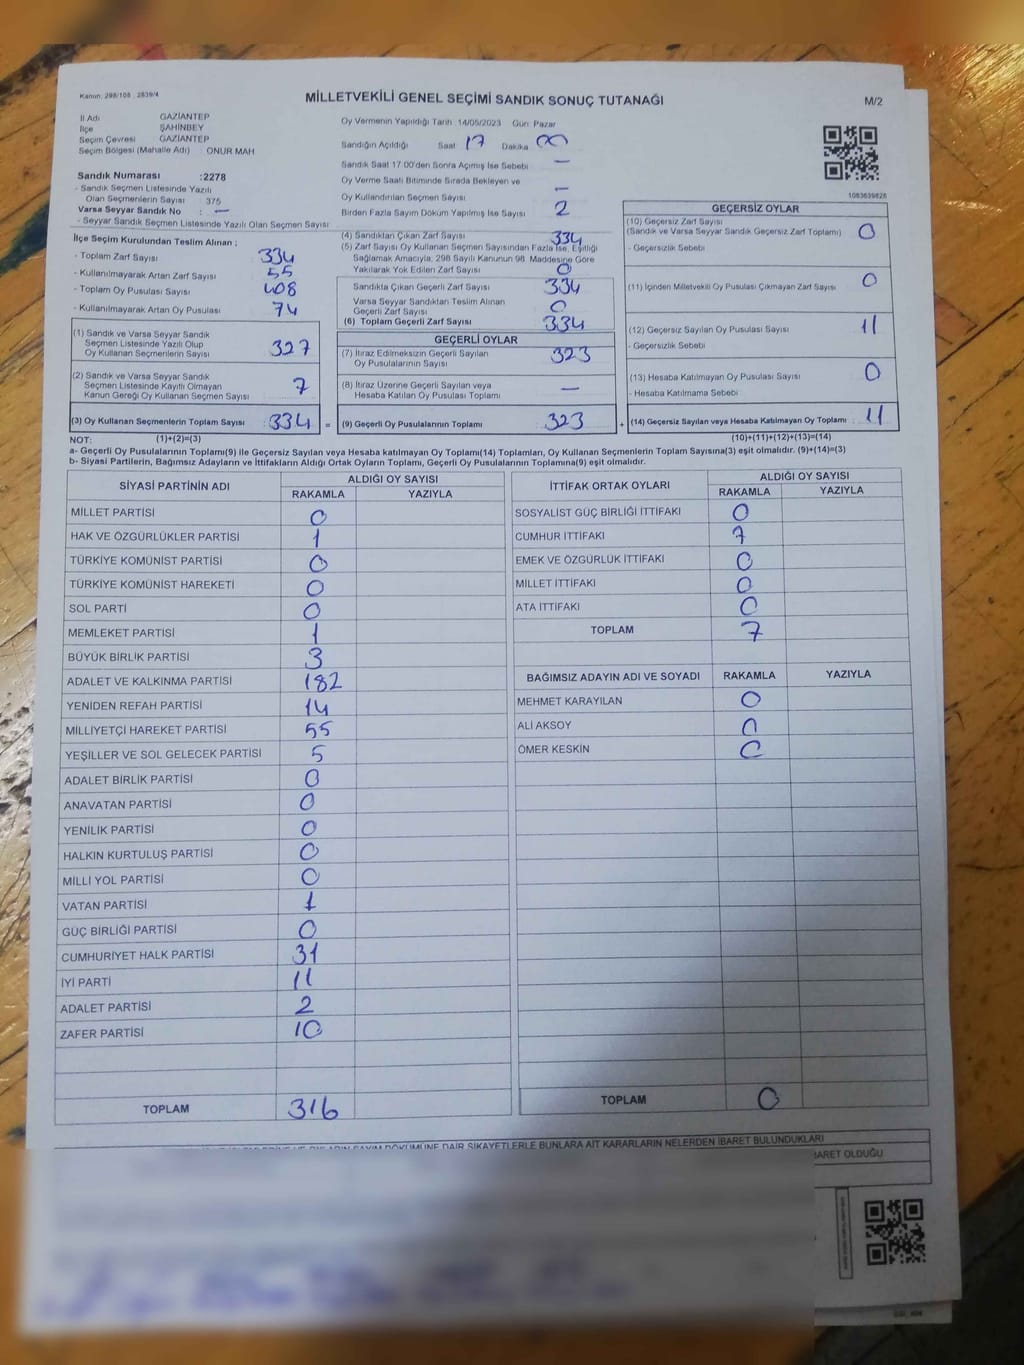 Kanun: 298/105 , 2839/4
MİLLETVEKİLİ GENEL SEÇİMİ SANDIK SONUÇ TUTANAĞI
M/2
İl Adı GAZİANTEP
İlçe ŞAHİNBEY
Seçim Çevresi GAZİANTEP
Seçim Bölgesi (Mahalle Adı) : ONUR MAH
Sandık Numarası :2278
- Sandık Seçmen Listesinde Yazılı
Olan Seçmenlerin Sayısı : 375
Varsa Seyyar Sandık No : —
- Seyyar Sandık Seçmen Listesinde Yazılı Olan Seçmen Sayısı :
Oy Vermenin Yapıldığı Tarih: 14/05/2023 Gün: Pazar
Sandığın Açıldığı Saat 17 Dakika 00
Sandık Saat 17:00'den Sonra Açılmış İse Sebebi —
Oy Verme Saati Bitiminde Sırada Bekleyen ve
Oy Kullandırılan Seçmen Sayısı —
Birden Fazla Sayım Döküm Yapılmış İse Sayısı 2
1083639828
İlçe Seçim Kurulundan Teslim Alınan ;
- Toplam Zarf Sayısı 334
- Kullanılmayarak Artan Zarf Sayısı 55
- Toplam Oy Pusulası Sayısı 408
- Kullanılmayarak Artan Oy Pusulası 74
(1) Sandık ve Varsa Seyyar Sandık
Seçmen Listesinde Yazılı Olup
Oy Kullanan Seçmenlerin Sayısı 327
(2) Sandık ve Varsa Seyyar Sandık
Seçmen Listesinde Kayıtlı Olmayan
Kanun Gereği Oy Kullanan Seçmen Sayısı 7
(3) Oy Kullanan Seçmenlerin Toplam Sayısı 334 =
(4) Sandıktan Çıkan Zarf Sayısı 334
(5) Zarf Sayısı Oy Kullanan Seçmen Sayısından Fazla İse, Eşitliği
Sağlamak Amacıyla, 298 Sayılı Kanunun 98. Maddesine Göre
Yakılarak Yok Edilen Zarf Sayısı 0
Sandıkta Çıkan Geçerli Zarf Sayısı 334
Varsa Seyyar Sandıktan Teslim Alınan
Geçerli Zarf Sayısı 0
(6) Toplam Geçerli Zarf Sayısı 334
GEÇERLİ OYLAR
(7) İtiraz Edilmeksizin Geçerli Sayılan
Oy Pusulalarının Sayısı 323
(8) İtiraz Üzerine Geçerli Sayılan veya
Hesaba Katılan Oy Pusulası Toplamı —
(9) Geçerli Oy Pusulalarının Toplamı 323 +
GEÇERSİZ OYLAR
(10) Geçersiz Zarf Sayısı
(Sandık ve Varsa Seyyar Sandık Geçersiz Zarf Toplamı) 0
- Geçersizlik Sebebi
(11) İçinden Milletvekili Oy Pusulası Çıkmayan Zarf Sayısı 0
(12) Geçersiz Sayılan Oy Pusulası Sayısı 11
- Geçersizlik Sebebi
(13) Hesaba Katılmayan Oy Pusulası Sayısı 0
- Hesaba Katılmama Sebebi
(14) Geçersiz Sayılan veya Hesaba Katılmayan Oy Toplamı 11
NOT: (1)+(2)=(3) (10)+(11)+(12)+(13)=(14)
a- Geçerli Oy Pusulalarının Toplamı(9) ile Geçersiz Sayılan veya Hesaba katılmayan Oy Toplamı(14) Toplamları, Oy Kullanan Seçmenlerin Toplam Sayısına(3) eşit olmalıdır. (9)+(14)=(3)
b- Siyasi Partilerin, Bağımsız Adayların ve İttifakların Aldığı Ortak Oyların Toplamı, Geçerli Oy Pusulalarının Toplamına(9) eşit olmalıdır.
SİYASİ PARTİNİN ADI ALDIĞI OY SAYISI
RAKAMLA YAZIYLA
MİLLET PARTİSİ 0
HAK VE ÖZGÜRLÜKLER PARTİSİ 1
TÜRKİYE KOMÜNİST PARTİSİ 0
TÜRKİYE KOMÜNİST HAREKETİ 0
SOL PARTİ 0
MEMLEKET PARTİSİ 1
BÜYÜK BİRLİK PARTİSİ 3
ADALET VE KALKINMA PARTİSİ 182
YENİDEN REFAH PARTİSİ 14
MİLLİYETÇİ HAREKET PARTİSİ 55
YEŞİLLER VE SOL GELECEK PARTİSİ 5
ADALET BİRLİK PARTİSİ 0
ANAVATAN PARTİSİ 0
YENİLİK PARTİSİ 0
HALKIN KURTULUŞ PARTİSİ 0
MİLLİ YOL PARTİSİ 0
VATAN PARTİSİ 1
GÜÇ BİRLİĞİ PARTİSİ 0
CUMHURİYET HALK PARTİSİ 31
İYİ PARTİ 11
ADALET PARTİSİ 2
ZAFER PARTİSİ 10
TOPLAM 316
İTTİFAK ORTAK OYLARI ALDIĞI OY SAYISI
RAKAMLA YAZIYLA
SOSYALİST GÜÇ BİRLİĞİ İTTİFAKI 0
CUMHUR İTTİFAKI 7
EMEK VE ÖZGÜRLÜK İTTİFAKI 0
MİLLET İTTİFAKI 0
ATA İTTİFAKI 0
TOPLAM 7
BAĞIMSIZ ADAYIN ADI VE SOYADI RAKAMLA YAZIYLA
MEHMET KARAYILAN 0
ALİ AKSOY 0
ÖMER KESKİN 0
TOPLAM 0
SAYIM DÖKÜMÜNE DAİR ŞİKAYETLERLE BUNLARA AİT KARARLARIN NELERDEN İBARET BULUNDUKLARI
İBARET OLDUĞU